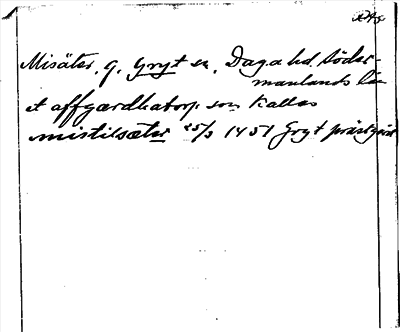 Misäter, g. Gryt sn, Daga hd. Söder-
manlands län
et affgærdhatorp som kallas
mistilsæter 25/3 1451 Gryt prästgård